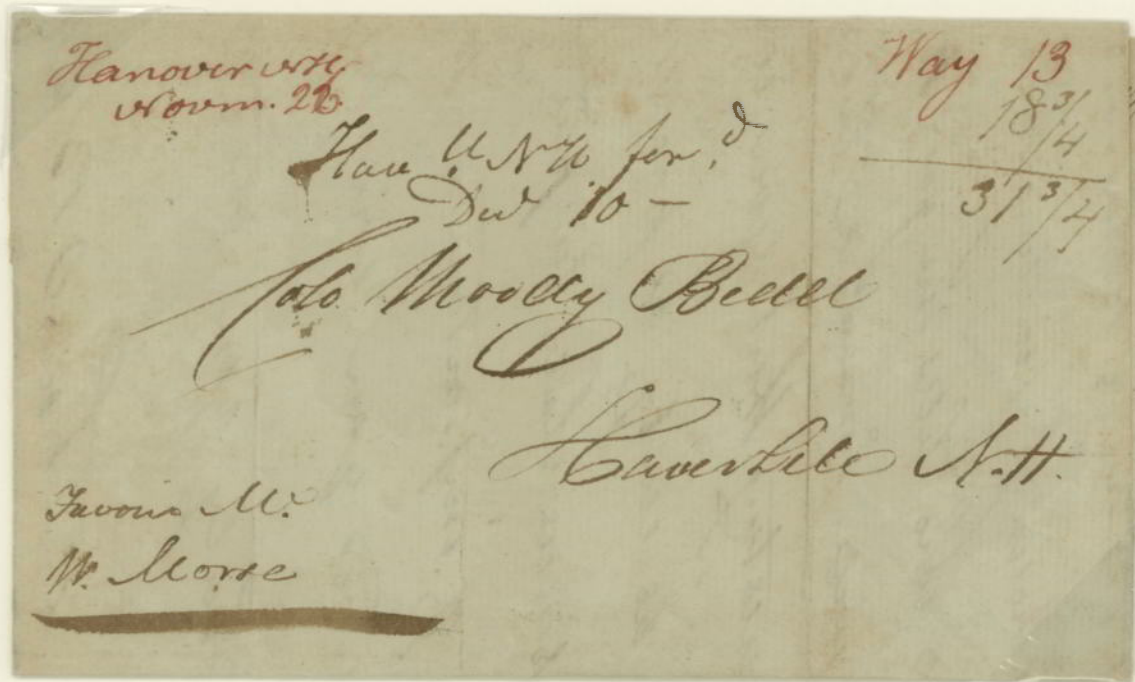 Hanover
Novm. 22
Way 13
18 3/4
31 3/4
Hav.ll N.H. for.d
Decr 10 —
Colo. Moody Bedel
Haverhill N.H.
Favour Mr.
W. Morse